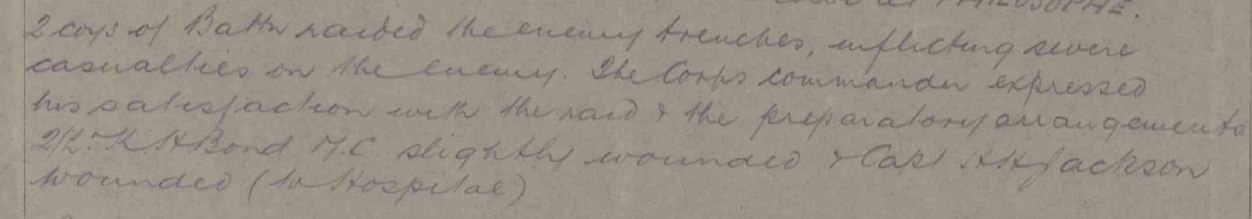 at PHILOSOPHE.
2 coys of Battn raided the enemy trenches, inflicting severe
casualties on the enemy. The Corps commander expressed
his satisfaction with the raid & the preparatory arrangements
2/Lt. K H Bond M.C slightly wounded & Capt. H H Jackson
wounded (to Hospital)